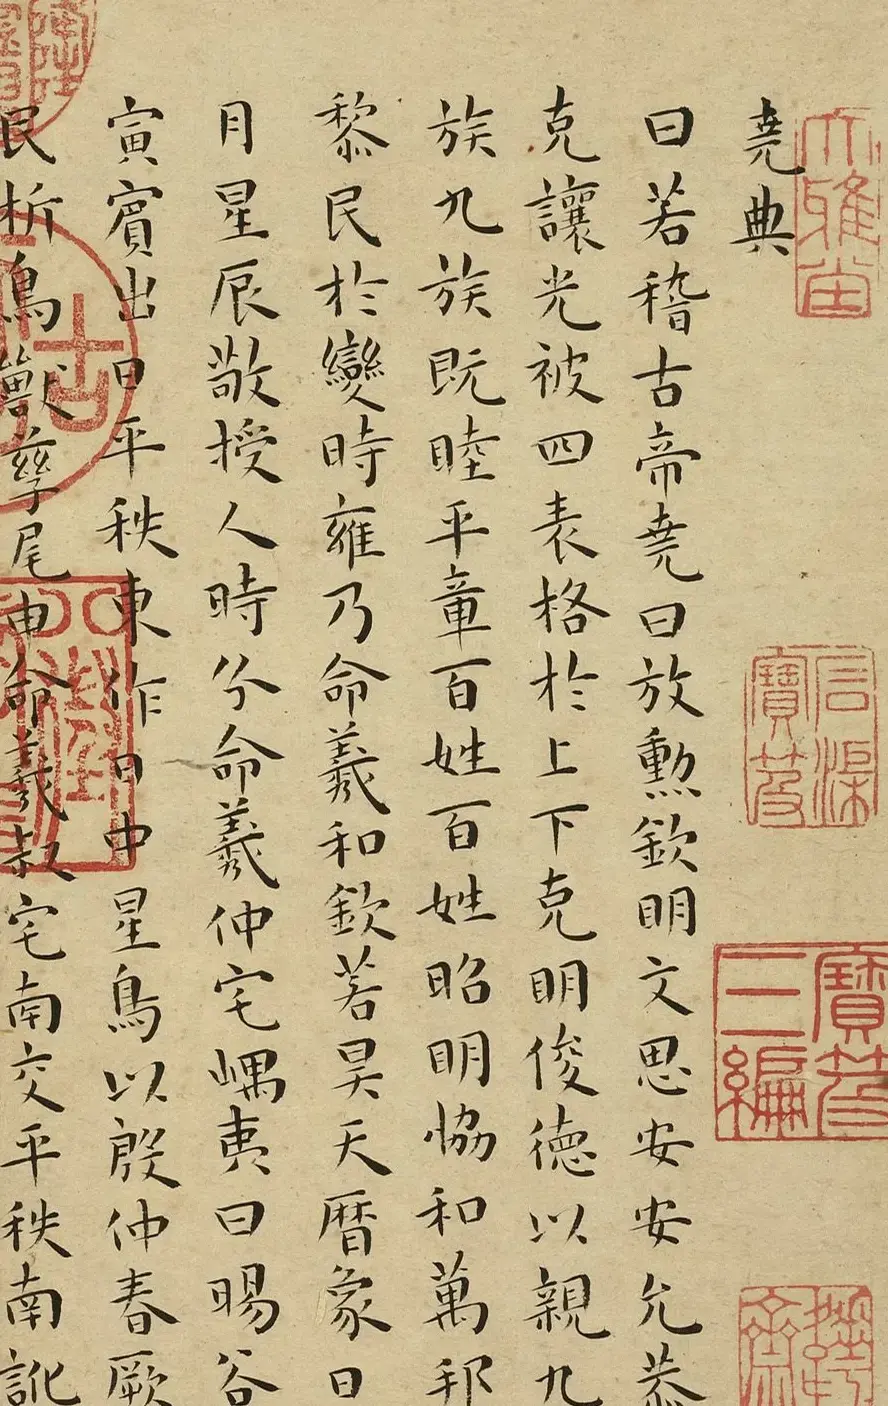 堯典
曰若稽古帝堯曰放勲欽明文思安安允恭
克讓光被四表格於上下克明俊德以親九
族九族既睦平章百姓百姓昭明恊和萬邦
黎民於變時雍乃命羲和欽若昊天曆象日
月星辰敬授人時分命羲仲宅嵎夷曰暘谷
寅賓出日平秩東作日中星鳥以殷仲春厥
民析鳥獸孳尾申命羲叔宅南交平秩南訛
石渠
寶笈
寶笈
三編